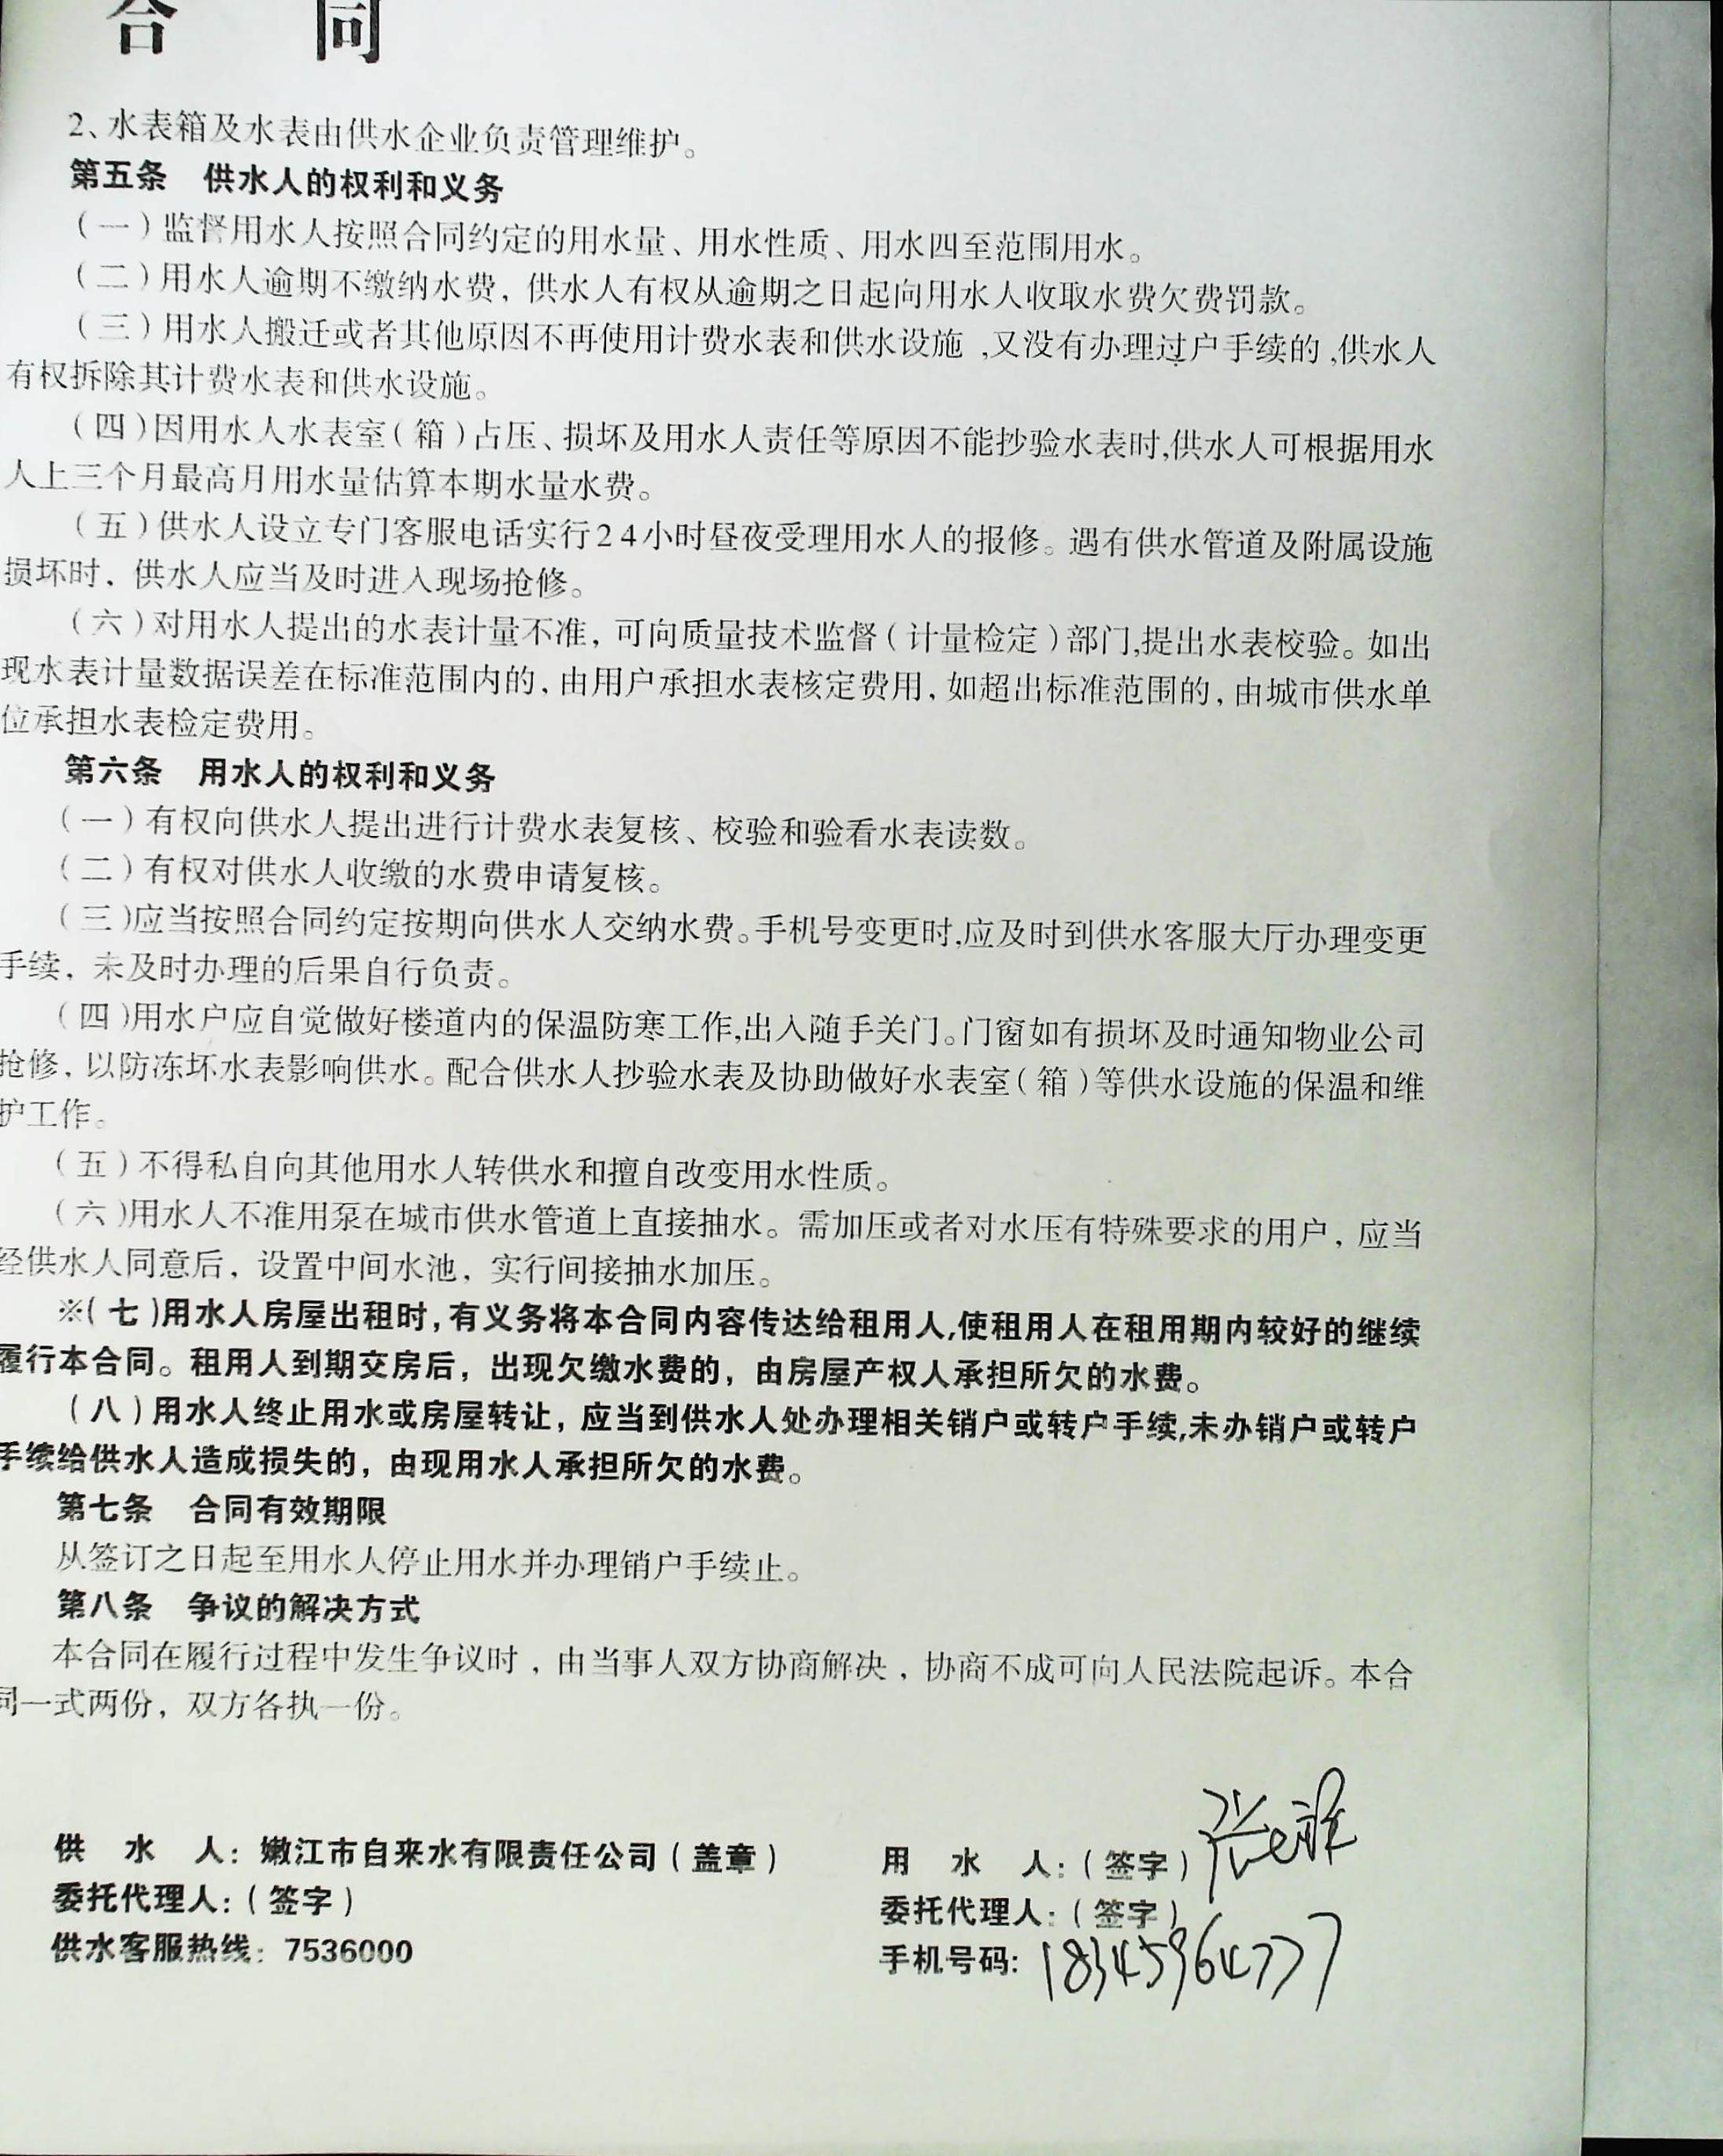 合 同
2、水表箱及水表由供水企业负责管理维护。
第五条 供水人的权利和义务
(一)监督用水人按照合同约定的用水量、用水性质、用水四至范围用水。
(二)用水人逾期不缴纳水费,供水人有权从逾期之日起向用水人收取水费欠费罚款。
(三)用水人搬迁或者其他原因不再使用计费水表和供水设施,又没有办理过户手续的,供水人
有权拆除其计费水表和供水设施。
(四)因用水人水表室(箱)占压、损坏及用水人责任等原因不能抄验水表时,供水人可根据用水
人上三个月最高月用水量估算本期水量水费。
(五)供水人设立专门客服电话实行24小时昼夜受理用水人的报修。遇有供水管道及附属设施
损坏时,供水人应当及时进入现场抢修。
(六)对用水人提出的水表计量不准,可向质量技术监督(计量检定)部门,提出水表校验。如出
现水表计量数据误差在标准范围内的,由用户承担水表核定费用,如超出标准范围的,由城市供水单
位承担水表检定费用。
第六条 用水人的权利和义务
(一)有权向供水人提出进行计费水表复核、校验和验看水表读数。
(二)有权对供水人收缴的水费申请复核。
(三)应当按照合同约定按期向供水人交纳水费。手机号变更时,应及时到供水客服大厅办理变更
手续,未及时办理的后果自行负责。
(四)用水户应自觉做好楼道内的保温防寒工作,出入随手关门。门窗如有损坏及时通知物业公司
抢修,以防冻坏水表影响供水。配合供水人抄验水表及协助做好水表室(箱)等供水设施的保温和维
护工作。
(五)不得私自向其他用水人转供水和擅自改变用水性质。
(六)用水人不准用泵在城市供水管道上直接抽水。需加压或者对水压有特殊要求的用户,应当
经供水人同意后,设置中间水池,实行间接抽水加压。
※(七)用水人房屋出租时,有义务将本合同内容传达给租用人,使租用人在租用期内较好的继续
履行本合同。租用人到期交房后,出现欠缴水费的,由房屋产权人承担所欠的水费。
(八)用水人终止用水或房屋转让,应当到供水人处办理相关销户或转户手续,未办销户或转户
手续给供水人造成损失的,由现用水人承担所欠的水费。
第七条 合同有效期限
从签订之日起至用水人停止用水并办理销户手续止。
第八条 争议的解决方式
本合同在履行过程中发生争议时,由当事人双方协商解决,协商不成可向人民法院起诉。本合
同一式两份,双方各执一份。
供 水 人:嫩江市自来水有限责任公司(盖章)
用 水 人:(签字)张
委托代理人:(签字)
委托代理人:(签字)
供水客服热线:7536000
手机号码:18345964777